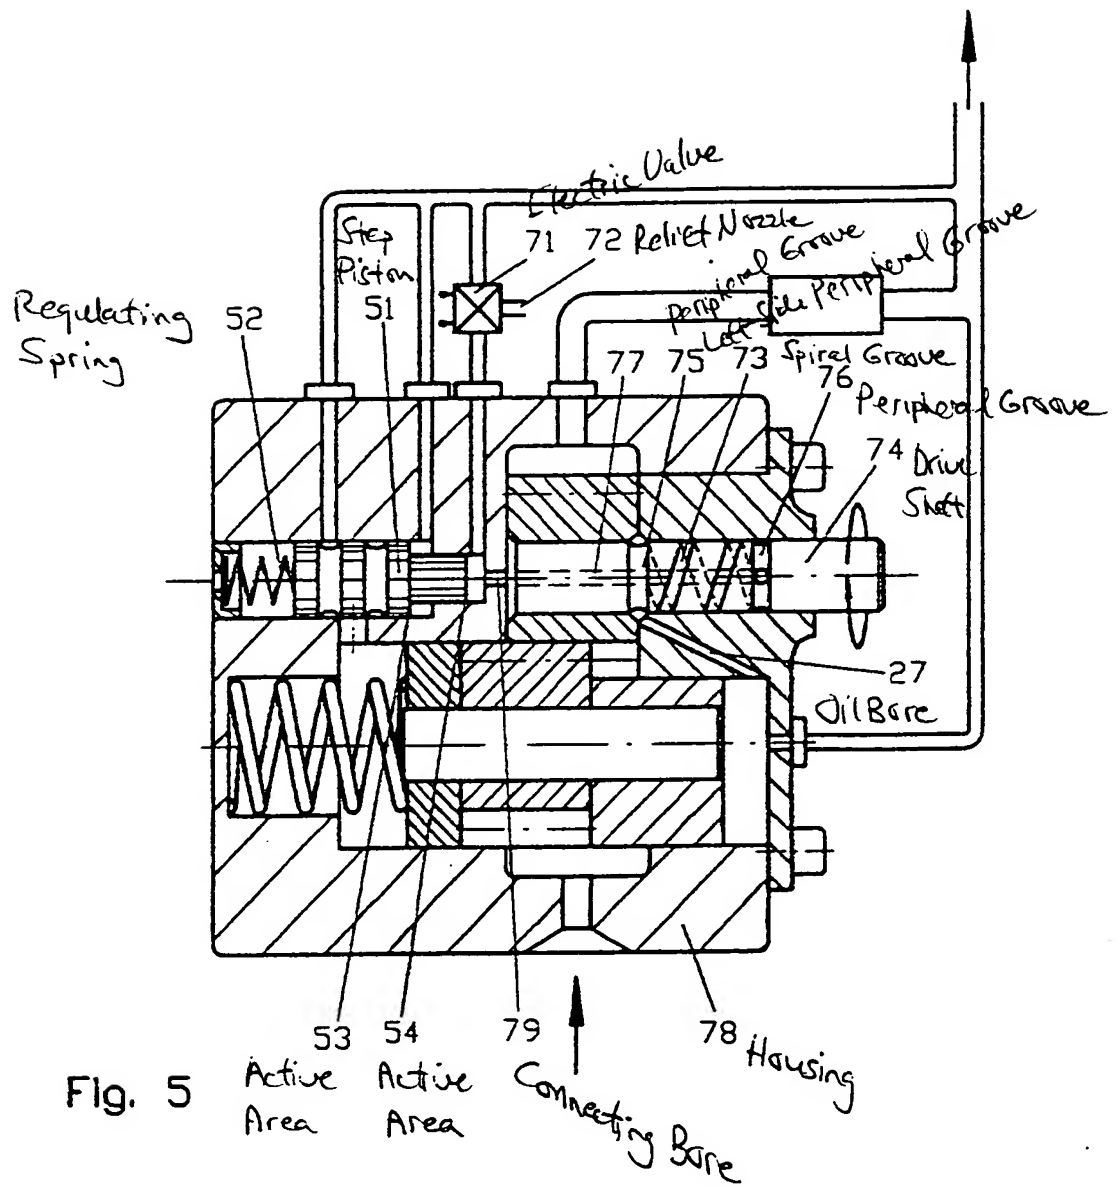 Electric Valve
71
72 Relief Nozzle
Peripheral Groove
Peripheral Groove
Left Side Peripheral Groove
Step
Piston
51
Regulating
Spring
52
77
75
73
Spiral Groove
76
Peripheral Groove
74 Drive
Shaft
27
Oil Bore
53
Active
Area
54
Active
Area
79
Connecting Bore
78 Housing
Fig. 5